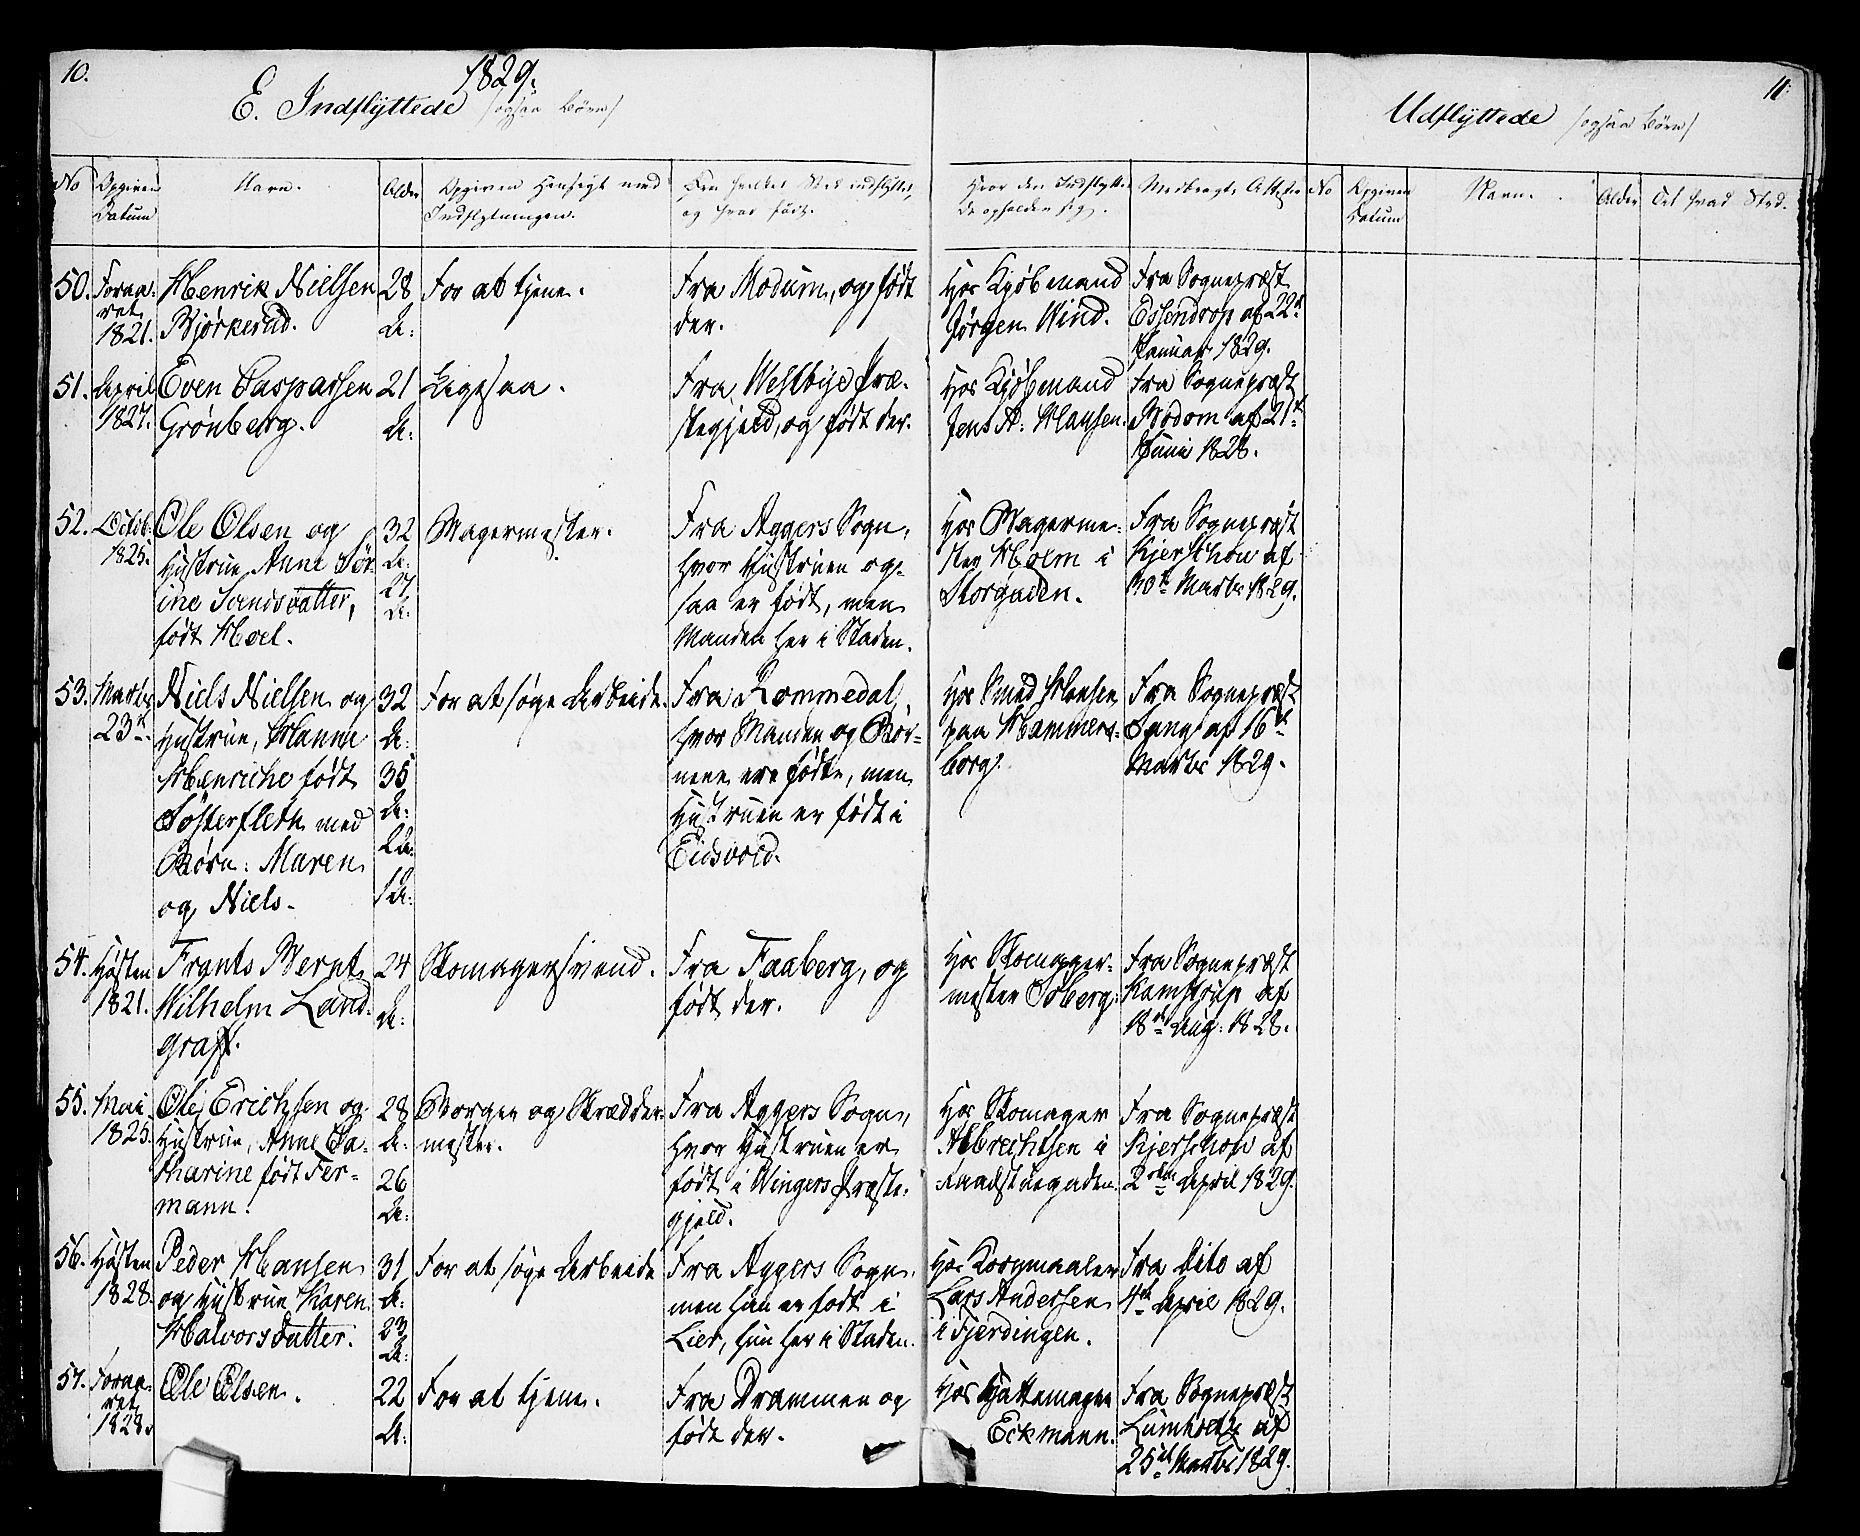 10.
1829.
11.
E. Indflyttede /ogsaa Børn/
Udflyttede /ogsaa Børn/
No
Opgiven Datum
Navn.
Alder
Opgiven Hensigt med Indflytningen.
Fra hvilket Sted indflyttet, og hvor født.
Hvor den Indflyttede opholder sig.
Medbragt Attester
No
Opgiven Datum
Navn.
Alder
Til hvad Sted.
50. Foraaret 1821.
Henrik Nielsen Bjørkerud.
28 A:
For at tjene.
Fra Modum, og født der.
Hos Kjøbmand Jørgen Wind.
Fra Sognepræst Essendrop af 22d Januar 1829.
51. April 1827.
Even Caspersen Grönberg.
21 A:
Ligesaa.
Fra Westbye Præstegjeld, og født der.
Hos Kjøbmand Jens A: Hansen.
Fra Sognepræst Nodom af 21d Juni 1828.
52. Octob: 1825.
Ole Olsen og Hustrue Anne Sörine Sandsdatter, født Hoel.
32 A: 27 A:
Bagermester.
Fra Aggers Sogn, hvor Hustruen ogsaa er født, men Manden her i Staden.
Hos Bagermester Holm i Storgaden.
Fra Sognepræst Kjerschow af 30te Marts 1829.
53. Marts 23d.
Niels Nielsen og Hustrue, Hanne Henriche født Sösterfleth med Børn: Maren og Niels.
32 A: 35 A: 2 A: 1 A:
For at søge Arbeide.
Fra Lommedal, hvor Manden og Børnene ere fødte, men Hustruen er født i Eidsvold.
Hos Smed Hansen paa Hammersborg.
Fra Sognepræst Fang af 16d Marts 1829.
54. Høsten 1821.
Frants Bernt Wilhelm Landgraff.
24 A:
Skomagersvend.
Fra Faaberg, og født der.
Hos Skomagermester Osberg.
Fra Sognepræst Kamstrup af 18de Aug: 1828.
55. Mai 1825.
Ole Erichsen og Hustrue, Anne Catharine født Fermann.
28 A: 26 A:
Borger og Skræddermester.
Fra Aggers Sogn, hvor Hustruen er født i Wingers Præstegjeld.
Hos Skomager Albrechtsen i Raadstuegaden.
Fra Sognepræst Kjerschow af 2den April 1829.
56. Høsten 1828.
Peder Hansen og Hustrue Karen Halvorsdatter.
31 A: 23 A:
For at søge Arbeide
Fra Aggers Sogn, men han er født i Lier, hun her i Staden.
Hos Kornmaaler Lars Andersen i Fjerdingen.
Fra dito af 4de April 1829.
57. Foraaret 1828.
Ole Olsen.
22 A:
For at tjene.
Fra Drammen og født der.
Hos Hattemager Eckmann.
Fra Sognepræst Lumholtz af 25de Marts 1829.